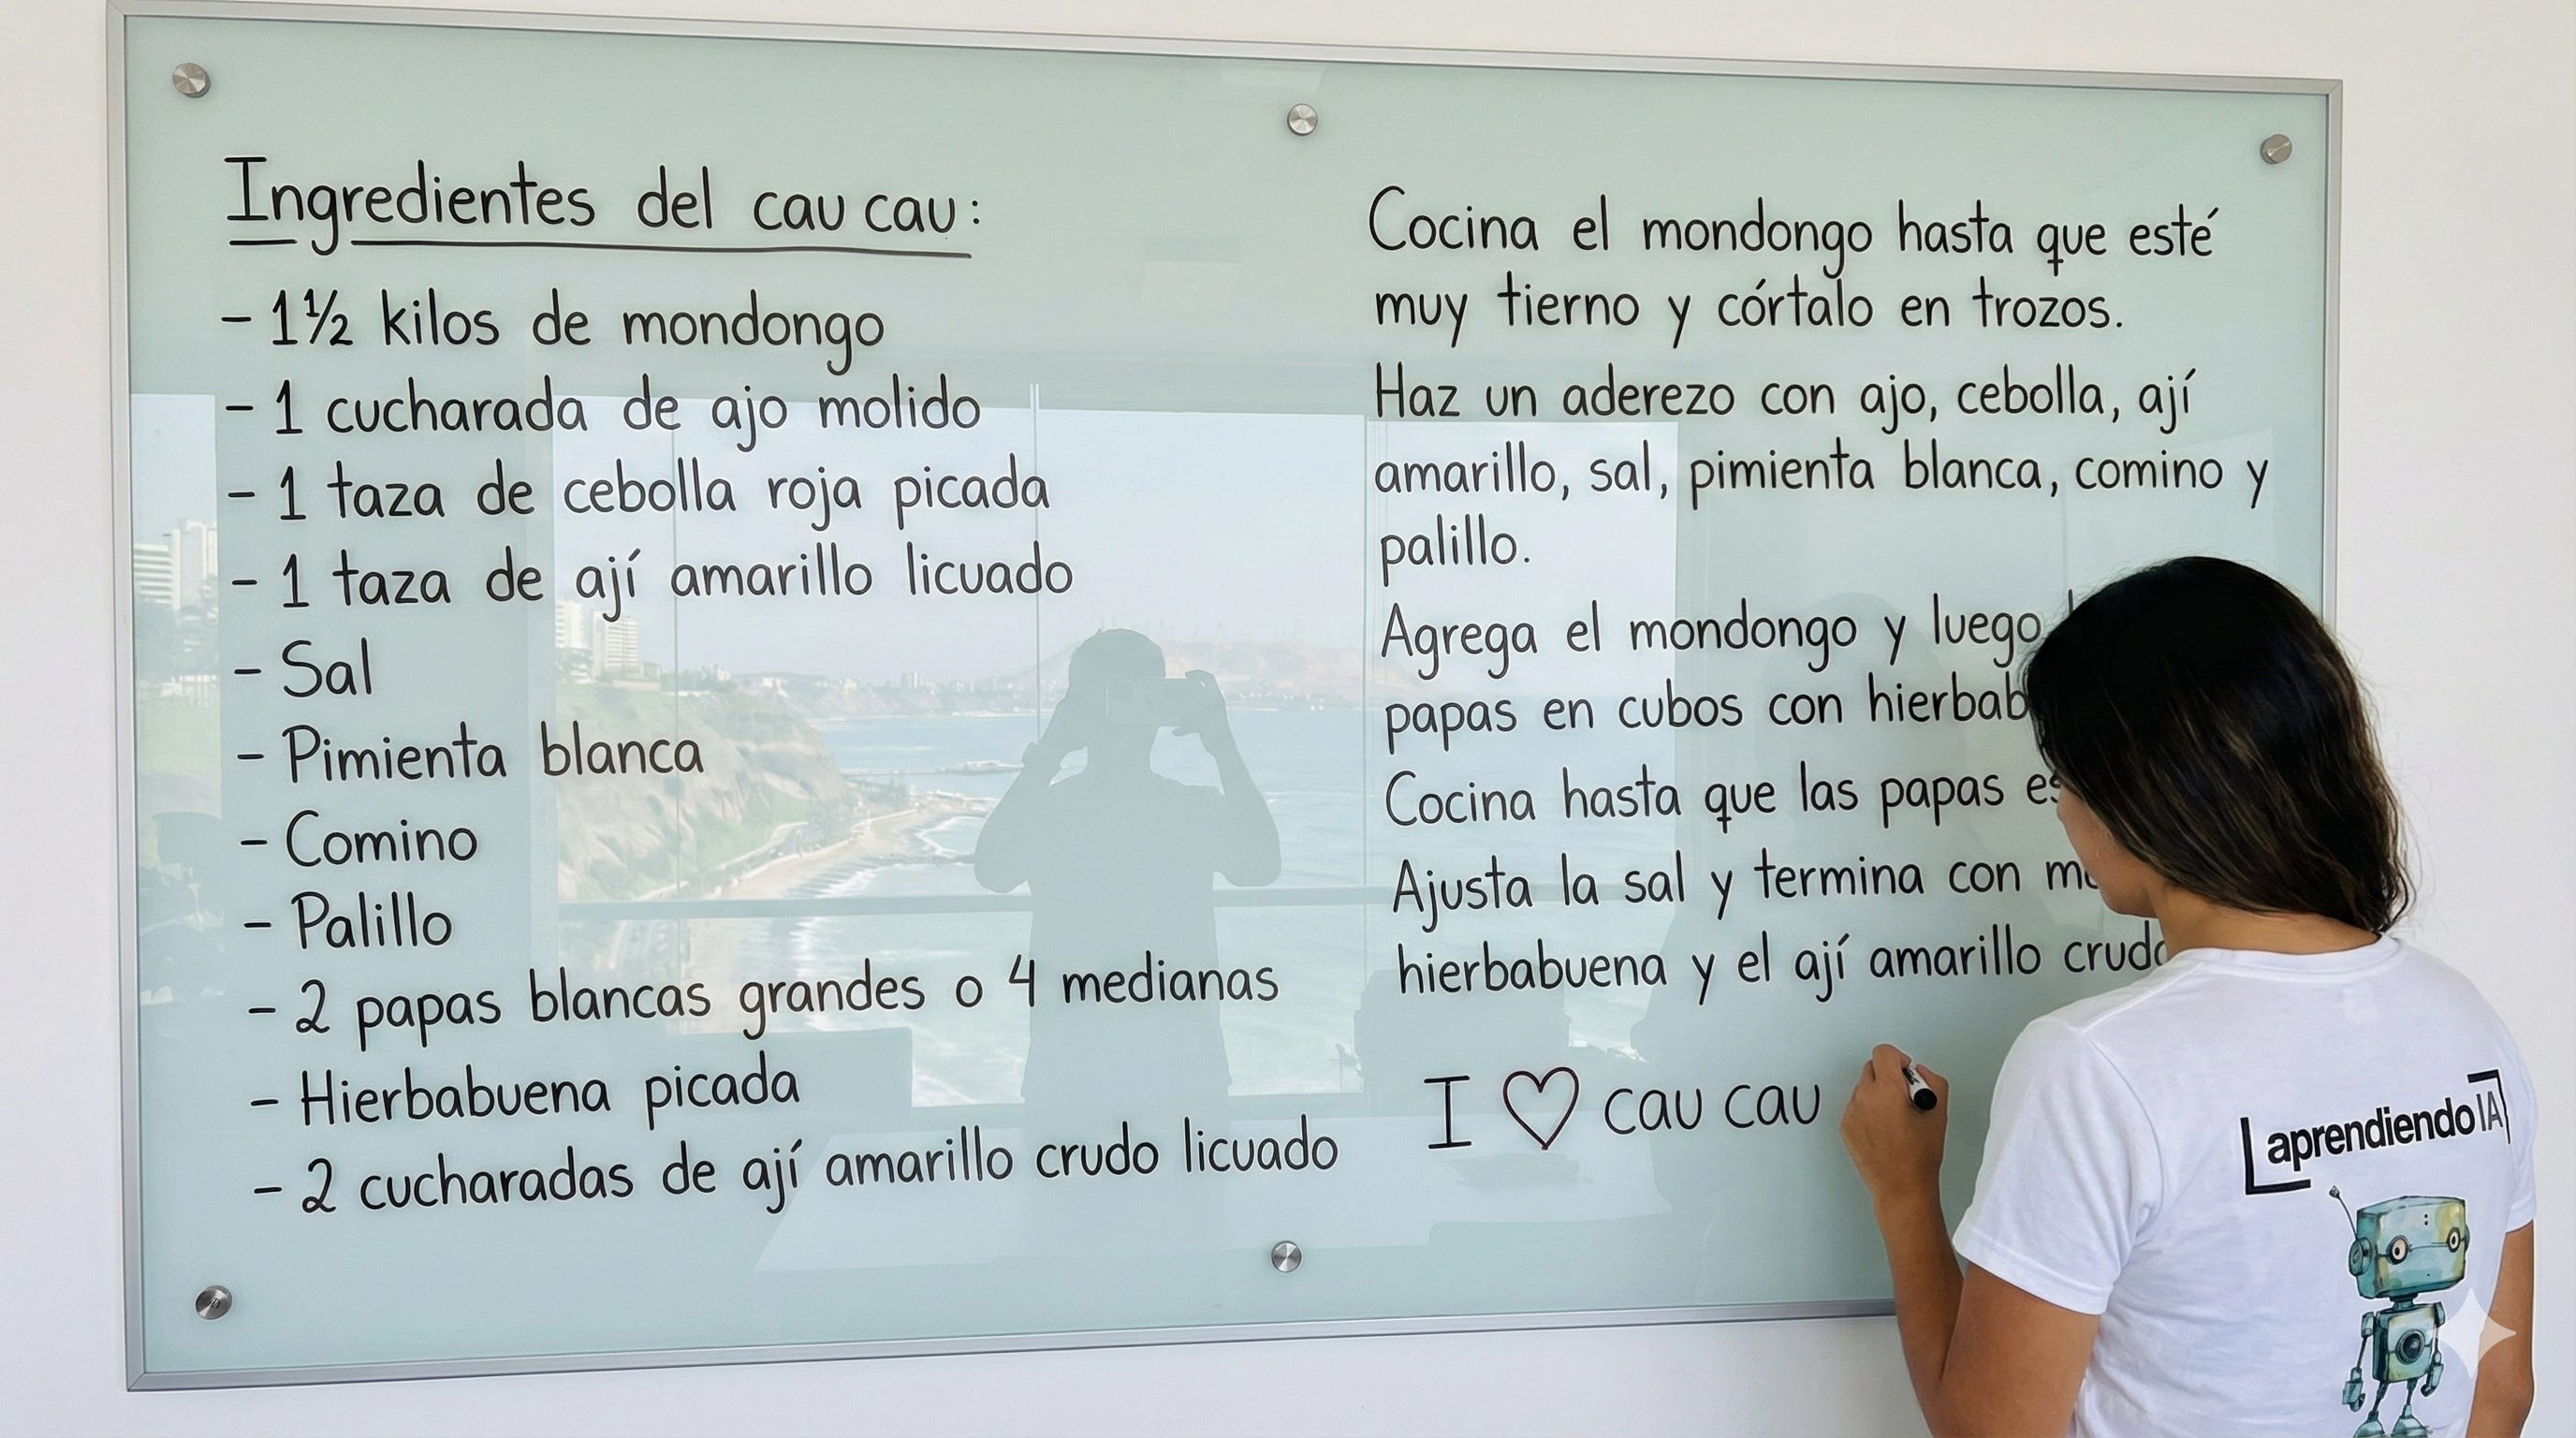 Ingredientes del cau cau:
- 1½ kilos de mondongo
- 1 cucharada de ajo molido
- 1 taza de cebolla roja picada
- 1 taza de ají amarillo licuado
- Sal
- Pimienta blanca
- Comino
- Palillo
- 2 papas blancas grandes o 4 medianas
- Hierbabuena picada
- 2 cucharadas de ají amarillo crudo licuado
Cocina el mondongo hasta que esté
muy tierno y córtalo en trozos.
Haz un aderezo con ajo, cebolla, ají
amarillo, sal, pimienta blanca, comino y
palillo.
Agrega el mondongo y luego
papas en cubos con
Cocina hasta que las papas
Ajusta la sal y termina con
hierbabuena y el ají amarillo
I ♡ cau cau
aprendiendoIA